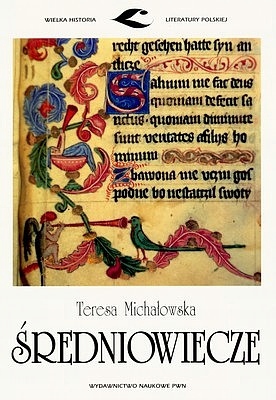 WIELKA HISTORIA LITERATURY POLSKIEJ
recht gesehen hatte syn an
tlicze
Saluum me fac deus
quoniam defecit sa
nctus ⁊ quoniam diminute
sunt veritates a filijs ho
minum
Zbawona me vczin gos
podne bo nestatczil swøty
Teresa Michałowska
ŚREDNIOWIECZE
WYDAWNICTWO NAUKOWE PWN